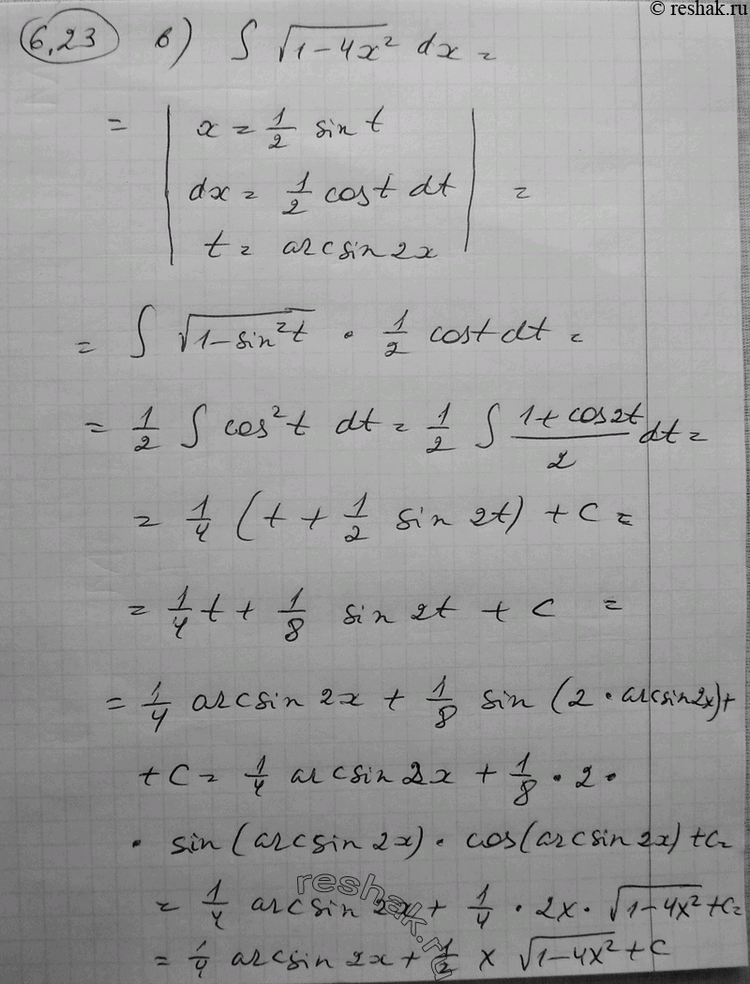 © reshak.ru
6,23 в) ∫ √(1-4x²) dx =
= | x = 1/2 sin t
dx = 1/2 cost dt | =
t = arcsin 2x
= ∫ √(1-sin²t) · 1/2 cost dt =
= 1/2 ∫ cos²t dt = 1/2 ∫ (1+cos2t)/2 dt =
= 1/4 (t + 1/2 sin 2t) + C =
= 1/4 t + 1/8 sin 2t + C =
= 1/4 arcsin 2x + 1/8 sin (2 · arcsin2x) +
+ C = 1/4 arcsin 2x + 1/8 · 2 ·
· sin (arcsin 2x) · cos (arcsin 2x) + C =
= 1/4 arcsin 2x + 1/4 · 2x · √(1-4x²) + C =
= 1/4 arcsin 2x + 1/2 x √(1-4x²) + C
reshak.ru